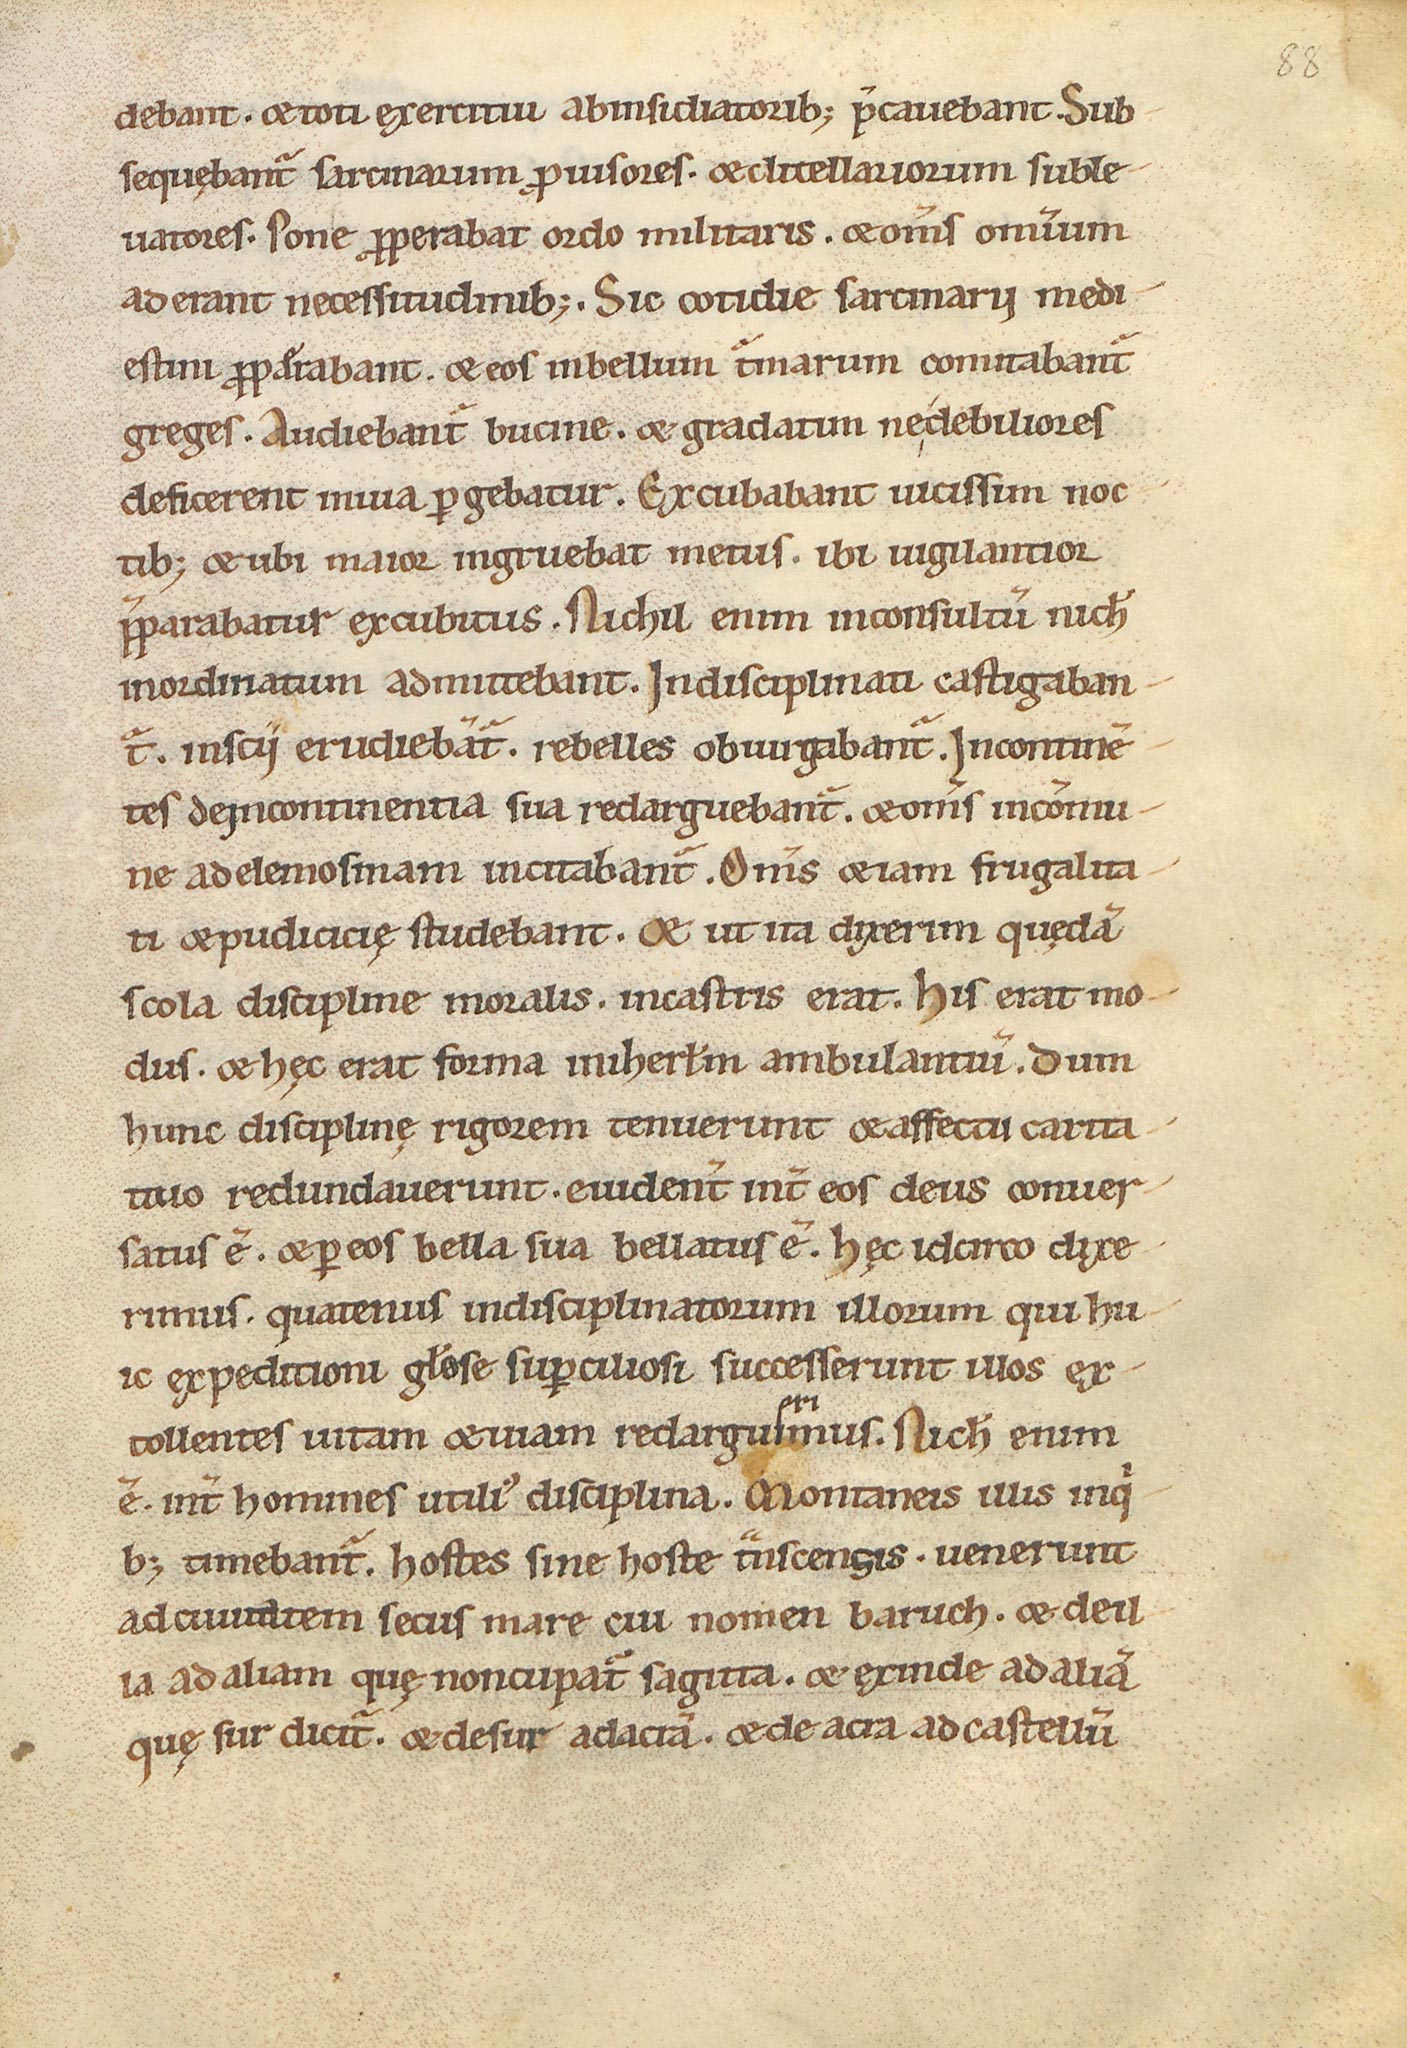 88
debant. & toti exercitui ab insidiatorib; p̄cauebant. Sub-
sequębant᷑ sarcinarum ꝓuisores. & clitellariorum suble-
uatores. Pone ꝓperabat ordo militaris. & om̄s omnium
aderant necessitudinib;. Sic cotidie sarcinarij medi-
estini p̄parabant. & eos in bellum t᷑marum comitabant᷑
greges. Audiebant᷑ bucine. & gradatim ne debiliores
deficerent in uia ꝑgebatur. Excubabant uicissim noc-
tib; & ubi maior ingruebat metus. ibi uigilantior
p̄parabatur excubitus. Nichil enim inconsultū nich̄
inordinatum admittebant. Indisciplinati castigaban-
t᷑. inscij erudiebāt᷑. rebelles obiurgabant᷑. Incontinē-
tes de incontinentia sua redarguebant᷑. & om̄s in cōmu-
ne ad elemosinam incitabant᷑. Om̄s etiam frugalita-
ti & pudicicię studebant. & ut ita dixerim quędā
scola discipline moralis. in castris erat. His erat mo-
dus. & hęc erat forma in iherl̄m ambulantiū. Dum
hunc disciplinę rigorem tenuerunt & affectu carita-
tiuo redundauerunt. euident̄ int̄ eos deus conuer-
satus ē. & ꝑ eos bella sua bellatus ē. Hęc idcirco dixe-
rimus. quatenus indisciplinatorum illorum qui hu-
ic expeditioni gl̄ose suꝑciliosi successerunt illos ex-
tollentes uitam & uiam redarguerimus. Nich̄ enim
ē. int̄ homines utili᾽ disciplina. Montaneis illis in q̄-
b; timebant᷑. hostes sine hoste t᷑nscensis. uenerunt
ad ciuitatem secus mare cui nomen baruch. & de il-
la ad aliam quę noncupat᷑ sagitta. & exinde ad aliā
quę sur dicit᷑. & de sur ad acrā. & de acra ad castellū